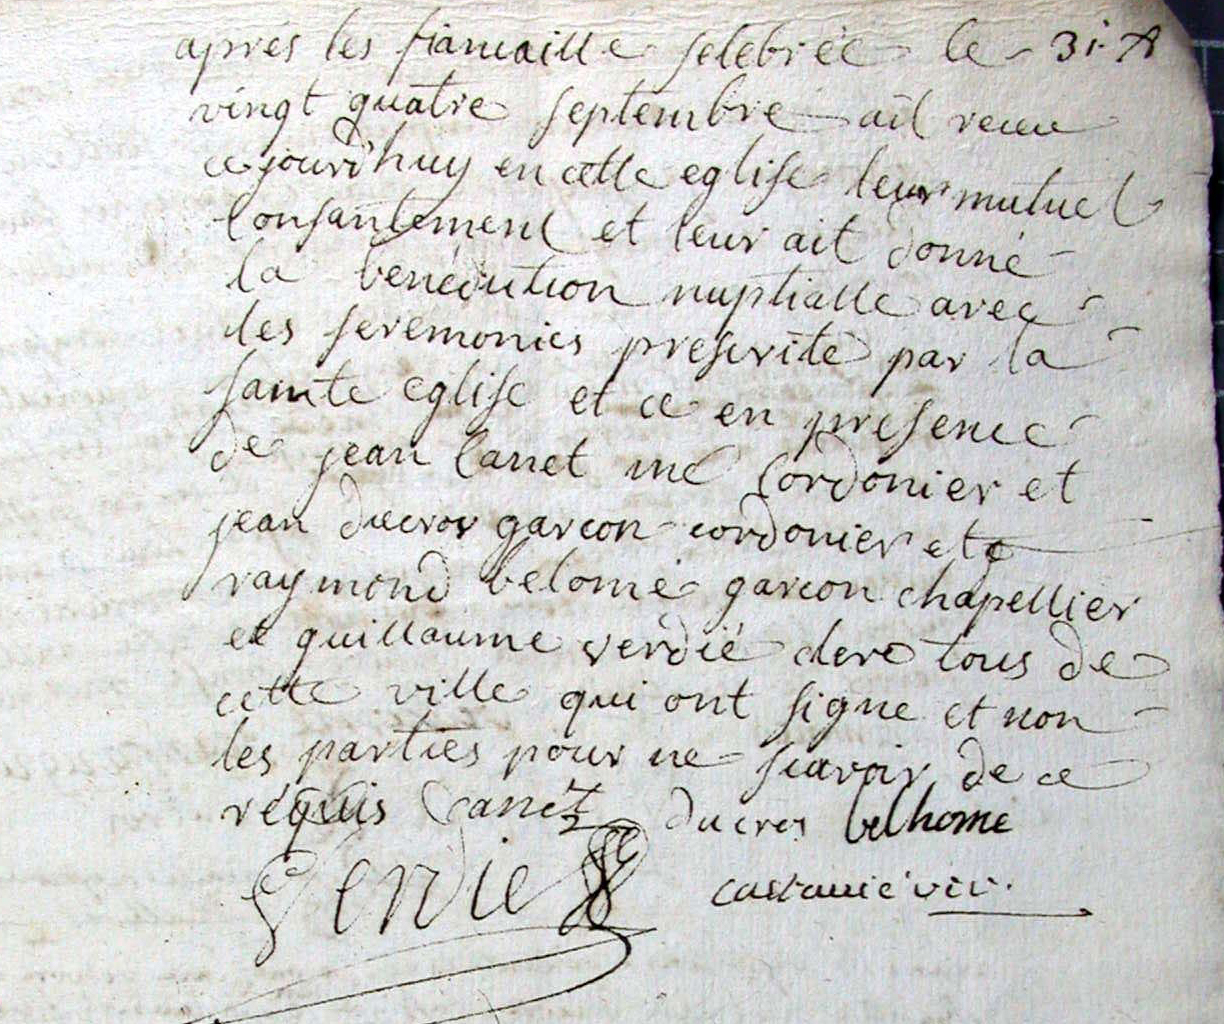 après les fiancaille selebrée le
vingt quatre septembre ait receu
ce jourd'huy en cette eglise leur mutuel
consantement et leur ait donné
la benediction nuptialle avec
les seremonies prescrite par la
sainte eglise et ce en presence
de jean Canet me Cordonier et
jean ducros garcon cordonier et
raymond belome garcon chapellier
et guillaume verdié clerc tous de
cette ville qui ont signe et non
les parties pour ne scavoir de ce
requis Canet ducros belhome
Verdie castanié vic.